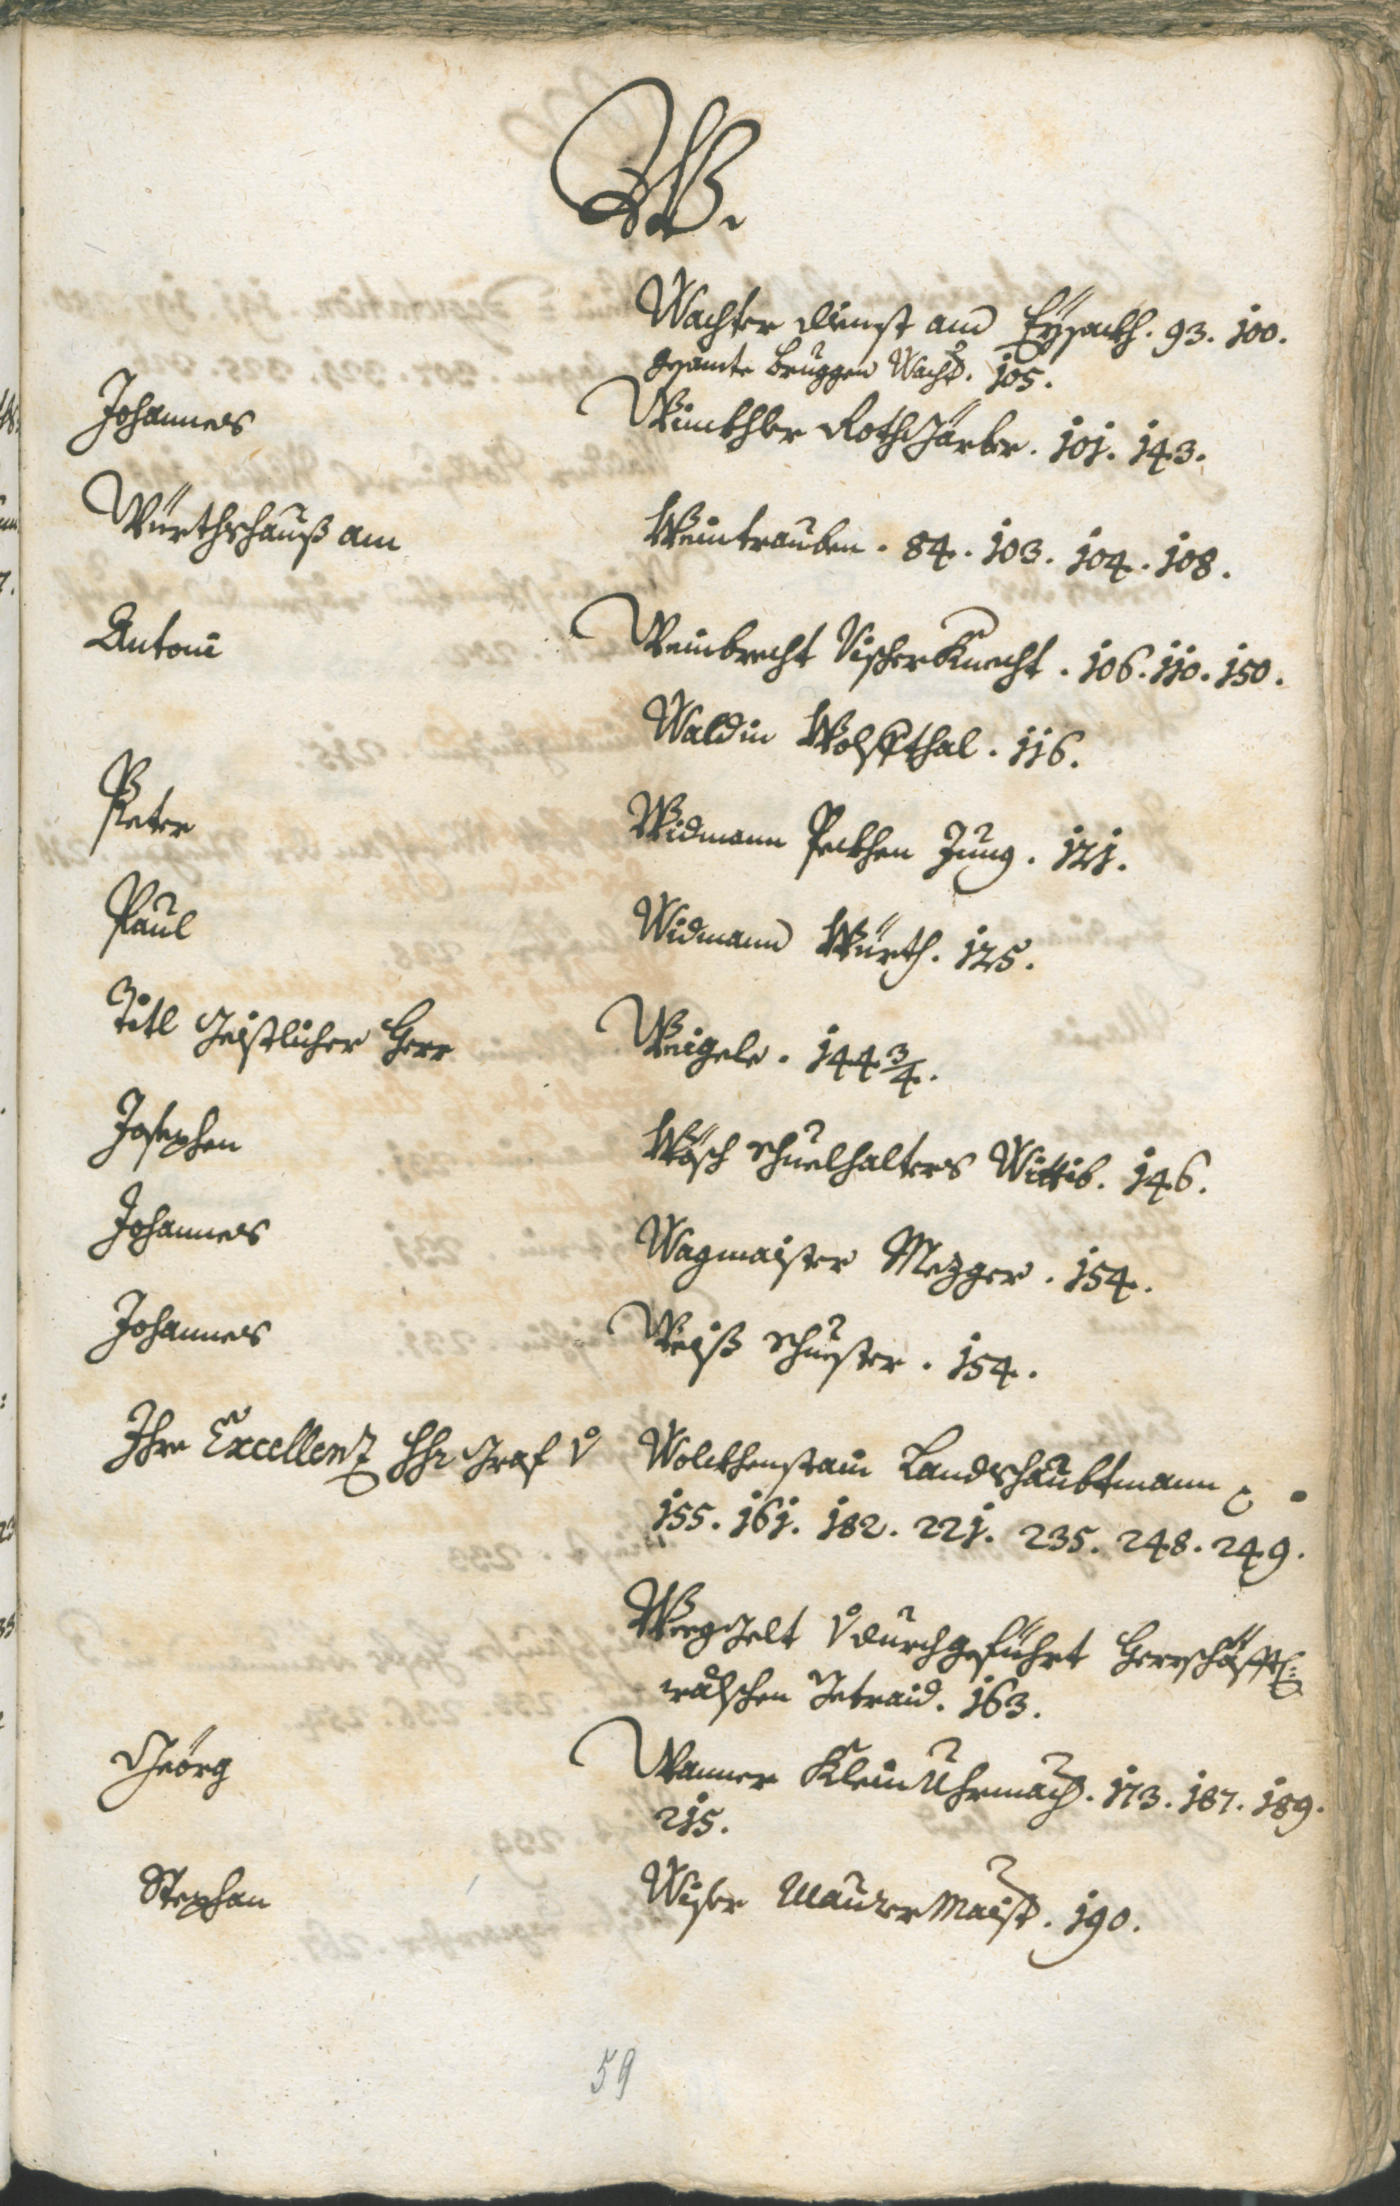 W.
Wachter dienst am Eysackh. 93. 100.
gesamte Bruggen Wacht. 105.
Johannes Winckhler Rothgärber. 101. 143.
Würthshauß am Weintrauben. 84. 103. 104. 108.
Antoni Weinbrecht VischerKnecht. 106. 110. 150.
Wald in Wolfsthal. 116.
Peter Widmann Peckhen Jung. 121.
Paul Widmann Würth. 125.
Titl Geistlicher Herr Weigele. 144 3/4.
Josephen Wösch Schuelhalters Wittib. 146.
Johannes Wagmaister Mezger. 154.
Johannes Weiß Schuester. 154.
Ihre Excellenz Graf v Wolckhenstain Landshaubtmann
155. 161. 182. 221. 235. 248. 249.
Weeggelt v durchgeführt
wälschen Getraid. 163.
Geörg Wanner Klein Uhrmach. 173. 187. 189.
215.
Stephan Wiser Maurer Maist. 190.
59